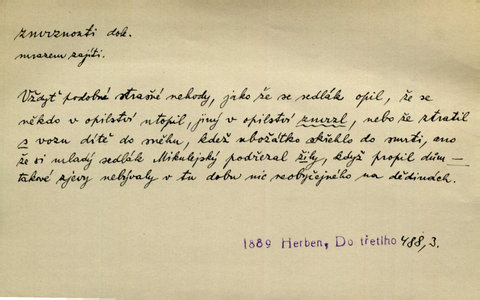 zmrznouti dok.
mrazem zajíti.
Vždyť podobné strašné nehody, jako že se sedlák opil, že se
někdo v opilství utopil, jiný v opilství zmrzl, nebo že stratil
s vozu dítě do sněhu, kdež ubožátko skřehlo do smrti, ano
že si mladý sedlák Mikulejský podřezal žíly, když propil dům —
takové zjevy nebývaly v tu dobu nic neobyčejného na dědinách.
1889 Herben, Do třetího 488, 3.